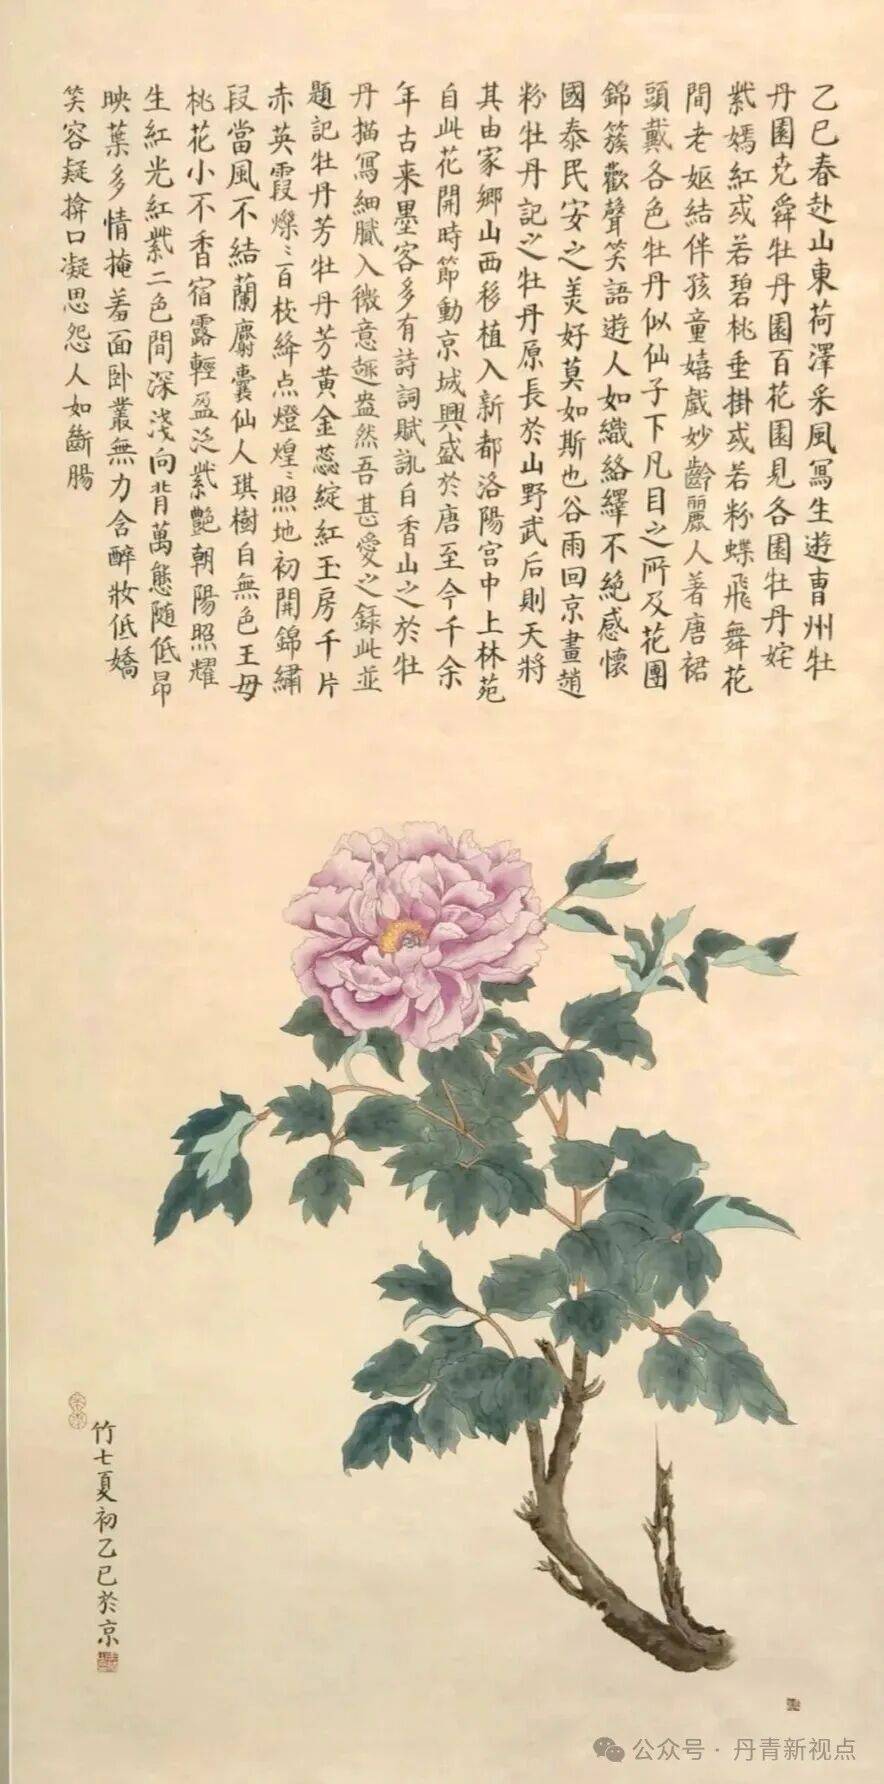 乙巳春赴山東荷澤采風寫生遊曹州牡
丹園尭舜牡丹園百花園見各園牡丹姹
紫嫣紅或若碧桃垂掛或若粉蝶飛舞花
間老嫗結伴孩童嬉戲妙齡麗人著唐裙
頭戴各色牡丹似仙子下凡目之所及花團
錦簇歡聲笑語遊人如織絡繹不絶感懷
國泰民安之美好莫如斯也谷雨回京畫趙
粉牡丹記之牡丹原長於山野武后則天將
其由家鄉山西移植入新都洛陽宮中上林苑
自此花開時節動京城興盛於唐至今千余
年古來墨客多有詩詞賦詠白香山之於牡
丹描寫細膩入微意趣盎然吾甚愛之錄此並
題記牡丹芳牡丹芳黃金蕊綻紅玉房千片
赤英霞爍〻百枝絳点燈煌〻照地初開錦繡
段當風不結蘭麝囊仙人琪樹白無色王母
桃花小不香宿露輕盈泛紫艷朝陽照耀
生紅光紅紫二色間深淺向背萬態随低昂
映葉多情掩羞面卧叢無力含醉妝低嬌
笑容疑揜口凝思怨人如斷腸
竹七夏初乙巳於京
公众号·丹青新视点